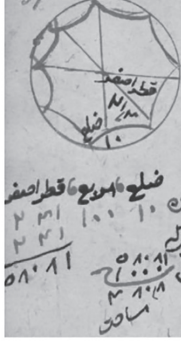 قطر اصغر
٢٤١
ضلع
١٠
ضلع مربع قطر اصغر
١٠ ١٠٠ ٢٤١
٢٤١
٥٨٠٨١ ٥٨٠٨١
١٠٠٠٠
٤٨٠٨١